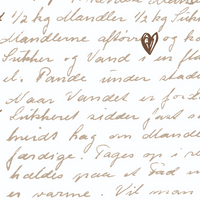 1/2 kg Mandler 1/2 kg Sukk
Mandlerne aftørre og ko
Sukker og Vand i en fla
el. Pande under stadi
Naar Vandet er for
Sukkeret sidder fast so
hvidt lag om Mande
færdige. Tages op i re
holdes paa et Fad
er varme. Vil man